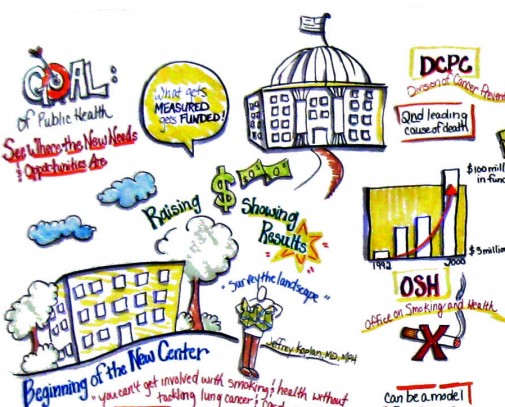 GOAL:
of Public Health
See Where the New Needs
& Opportunities Are
What gets
MEASURED
gets FUNDED!
DCPC
Division of Cancer Prevent
2nd leading
cause of death
$100 mil
in fun
$3 million
1992 2000
Raising
$
Showing
Results
"Survey the landscape"
Jeffrey Koplan, MD, MPH
OSH
Office on Smoking and Health
X
Beginning of the New Center
"you can't get involved with smoking & health without
tackling lung cancer &
can be a model